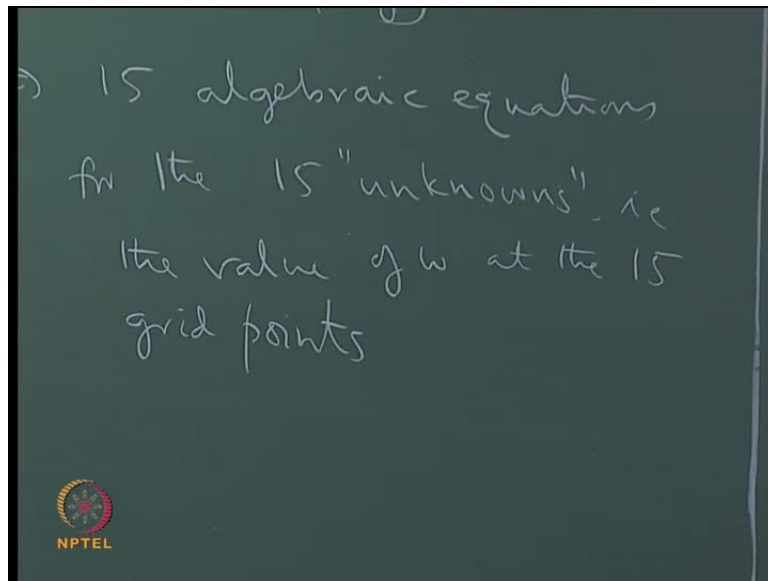 ⇒ 15 algebraic equations
for the 15 "unknowns", ie
the value of w at the 15
grid points
NPTEL